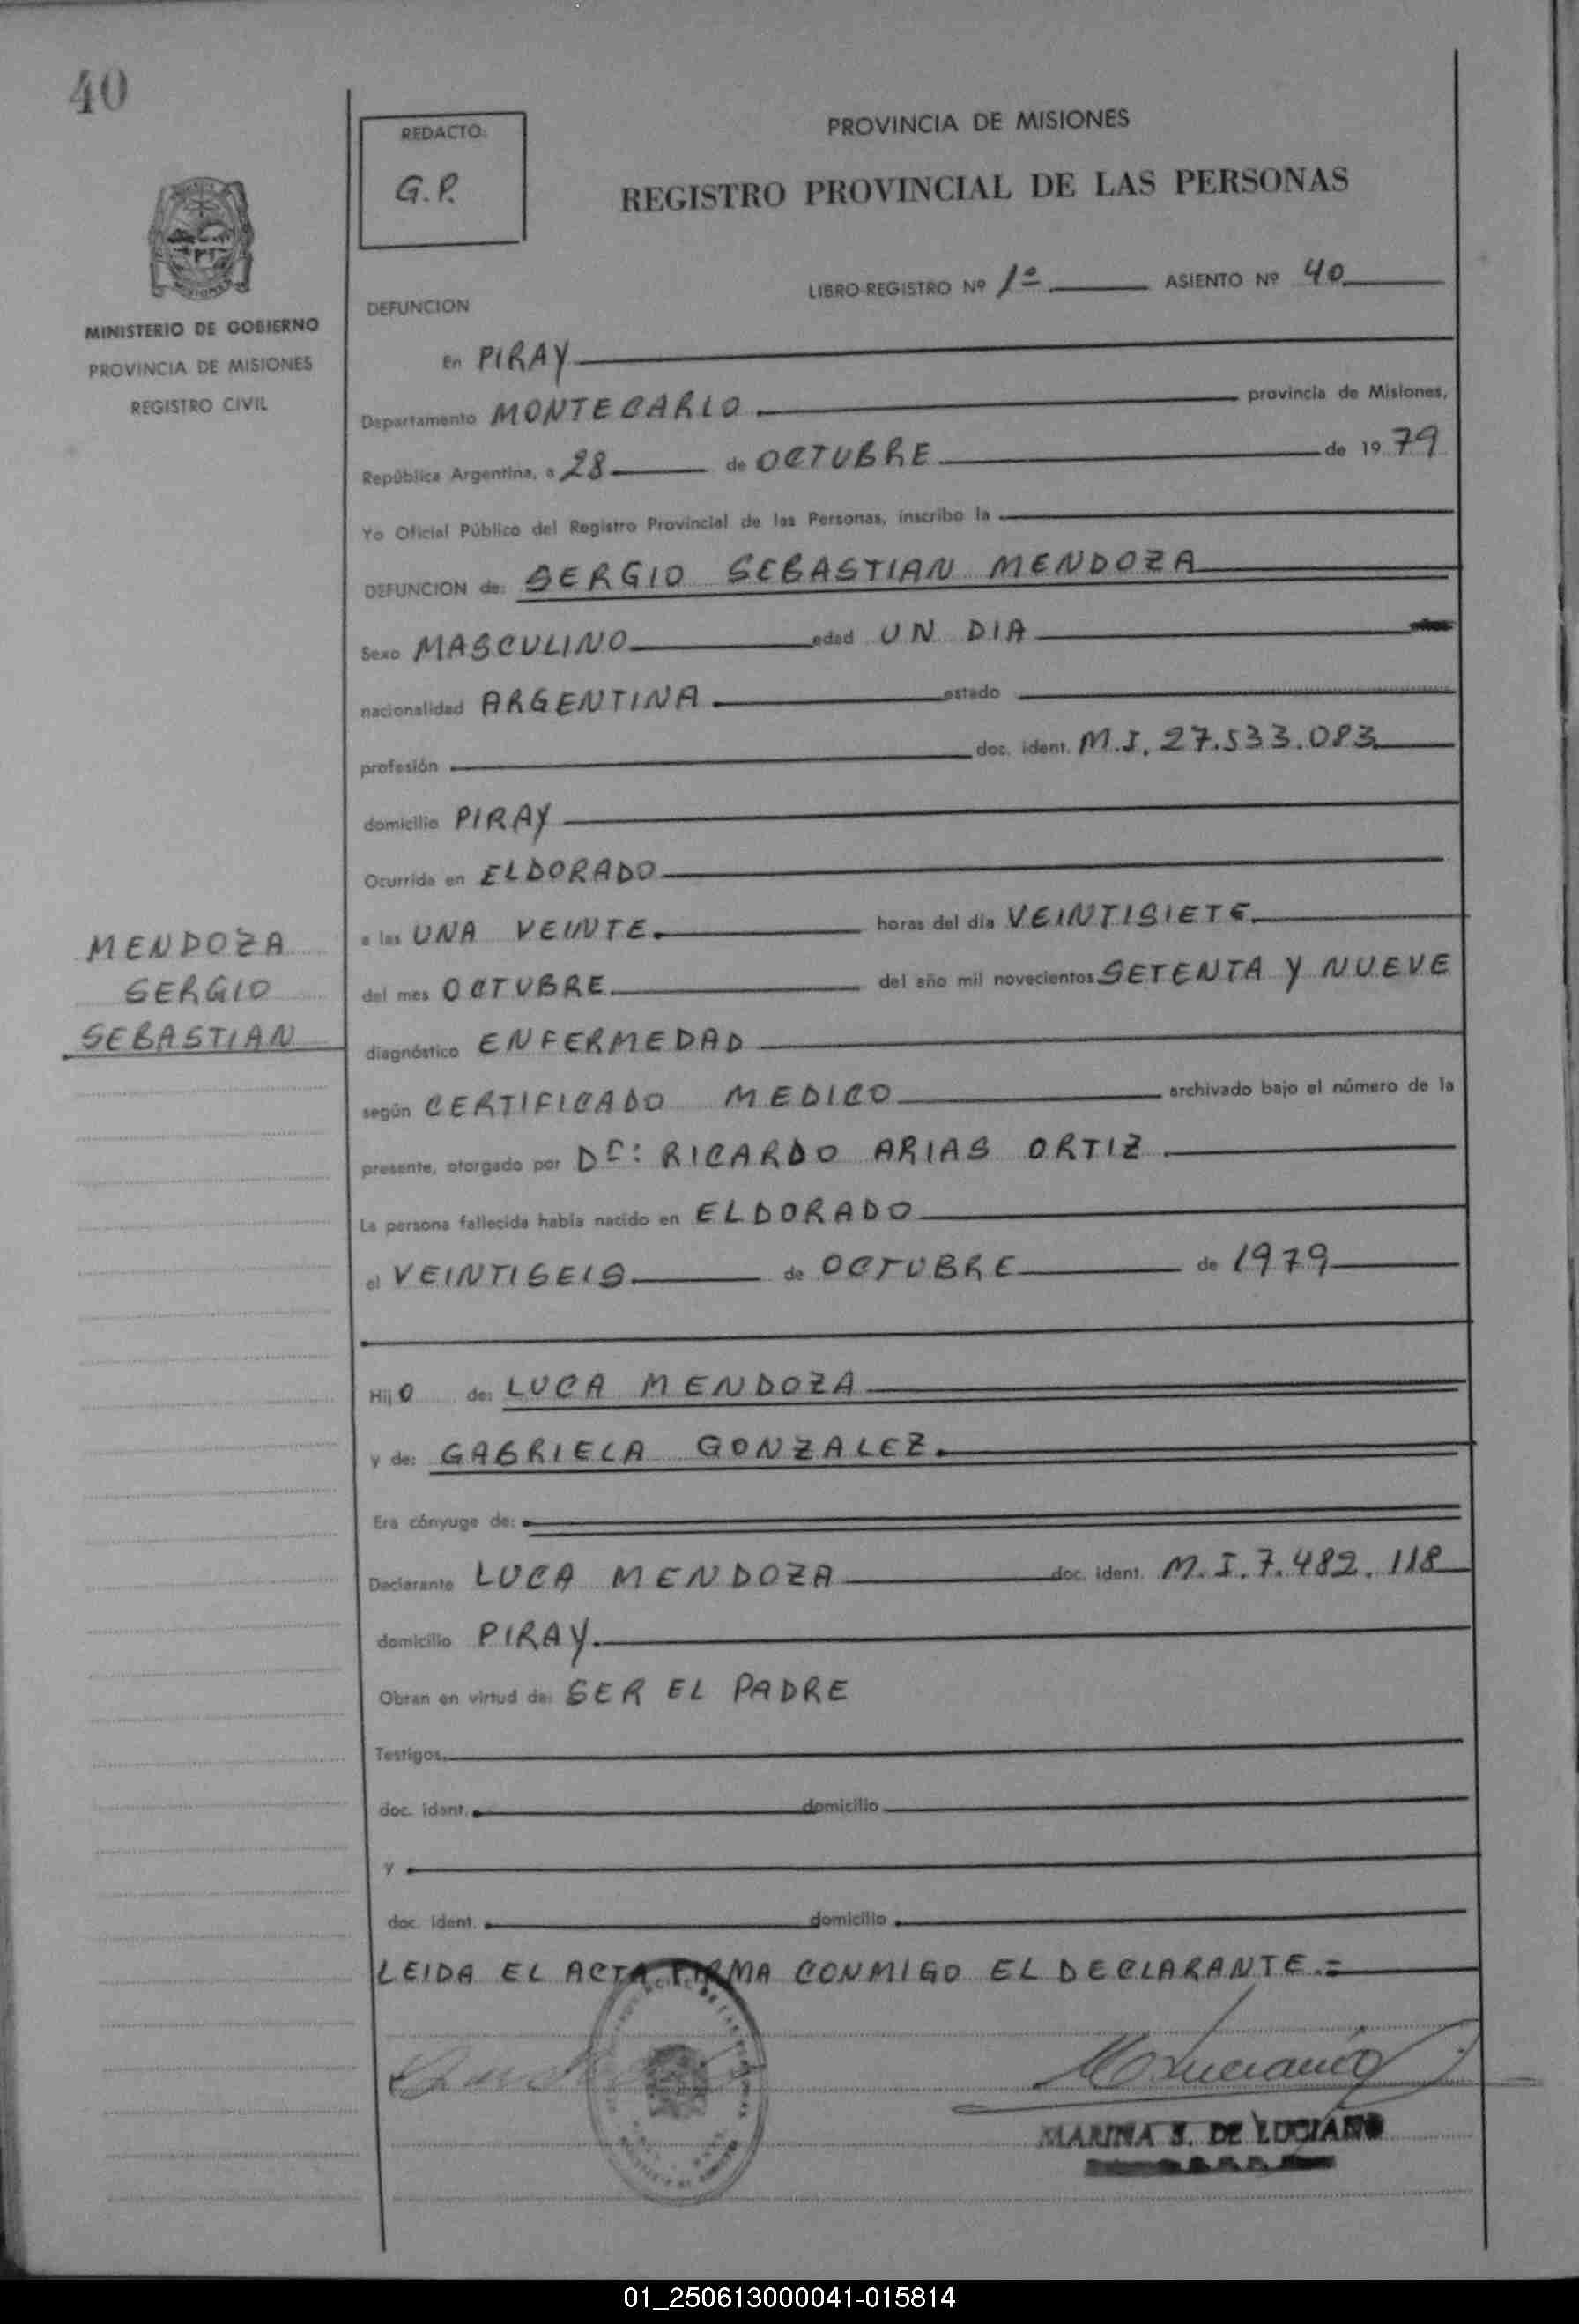 40
REDACTO:
G.P.
PROVINCIA DE MISIONES
REGISTRO PROVINCIAL DE LAS PERSONAS
LIBRO-REGISTRO Nº 1º ASIENTO Nº 40
MINISTERIO DE GOBIERNO
PROVINCIA DE MISIONES
REGISTRO CIVIL
DEFUNCION
En PIRAY
Departamento MONTECARLO provincia de Misiones,
República Argentina, a 28 de OCTUBRE de 1979
Yo Oficial Público del Registro Provincial de las Personas, inscribo la
DEFUNCION de: SERGIO SEBASTIAN MENDOZA
Sexo MASCULINO edad UN DIA
nacionalidad ARGENTINA estado
profesión doc. ident. M.I. 27.533.083
domicilio PIRAY
Ocurrida en ELDORADO
a las UNA VEINTE horas del día VEINTISIETE
del mes OCTUBRE del año mil novecientos SETENTA Y NUEVE
MENDOZA
SERGIO
SEBASTIAN
diagnóstico ENFERMEDAD
según CERTIFICADO MEDICO archivado bajo el número de la
presente, otorgado por Dr: RICARDO ARIAS ORTIZ
La persona fallecida había nacido en ELDORADO
el VEINTISEIS de OCTUBRE de 1979
Hijo de: LUCA MENDOZA
y de: GABRIELA GONZALEZ
Era cónyuge de:
Declarante LUCA MENDOZA doc. ident. M.I. 7.482.118
domicilio PIRAY
Obran en virtud de: SER EL PADRE
Testigos
doc. ident. domicilio
y
doc. ident. domicilio
LEIDA EL ACTA FIRMA CONMIGO EL DECLARANTE.=
MARINA S. DE LUCIANO
01_250613000041-015814